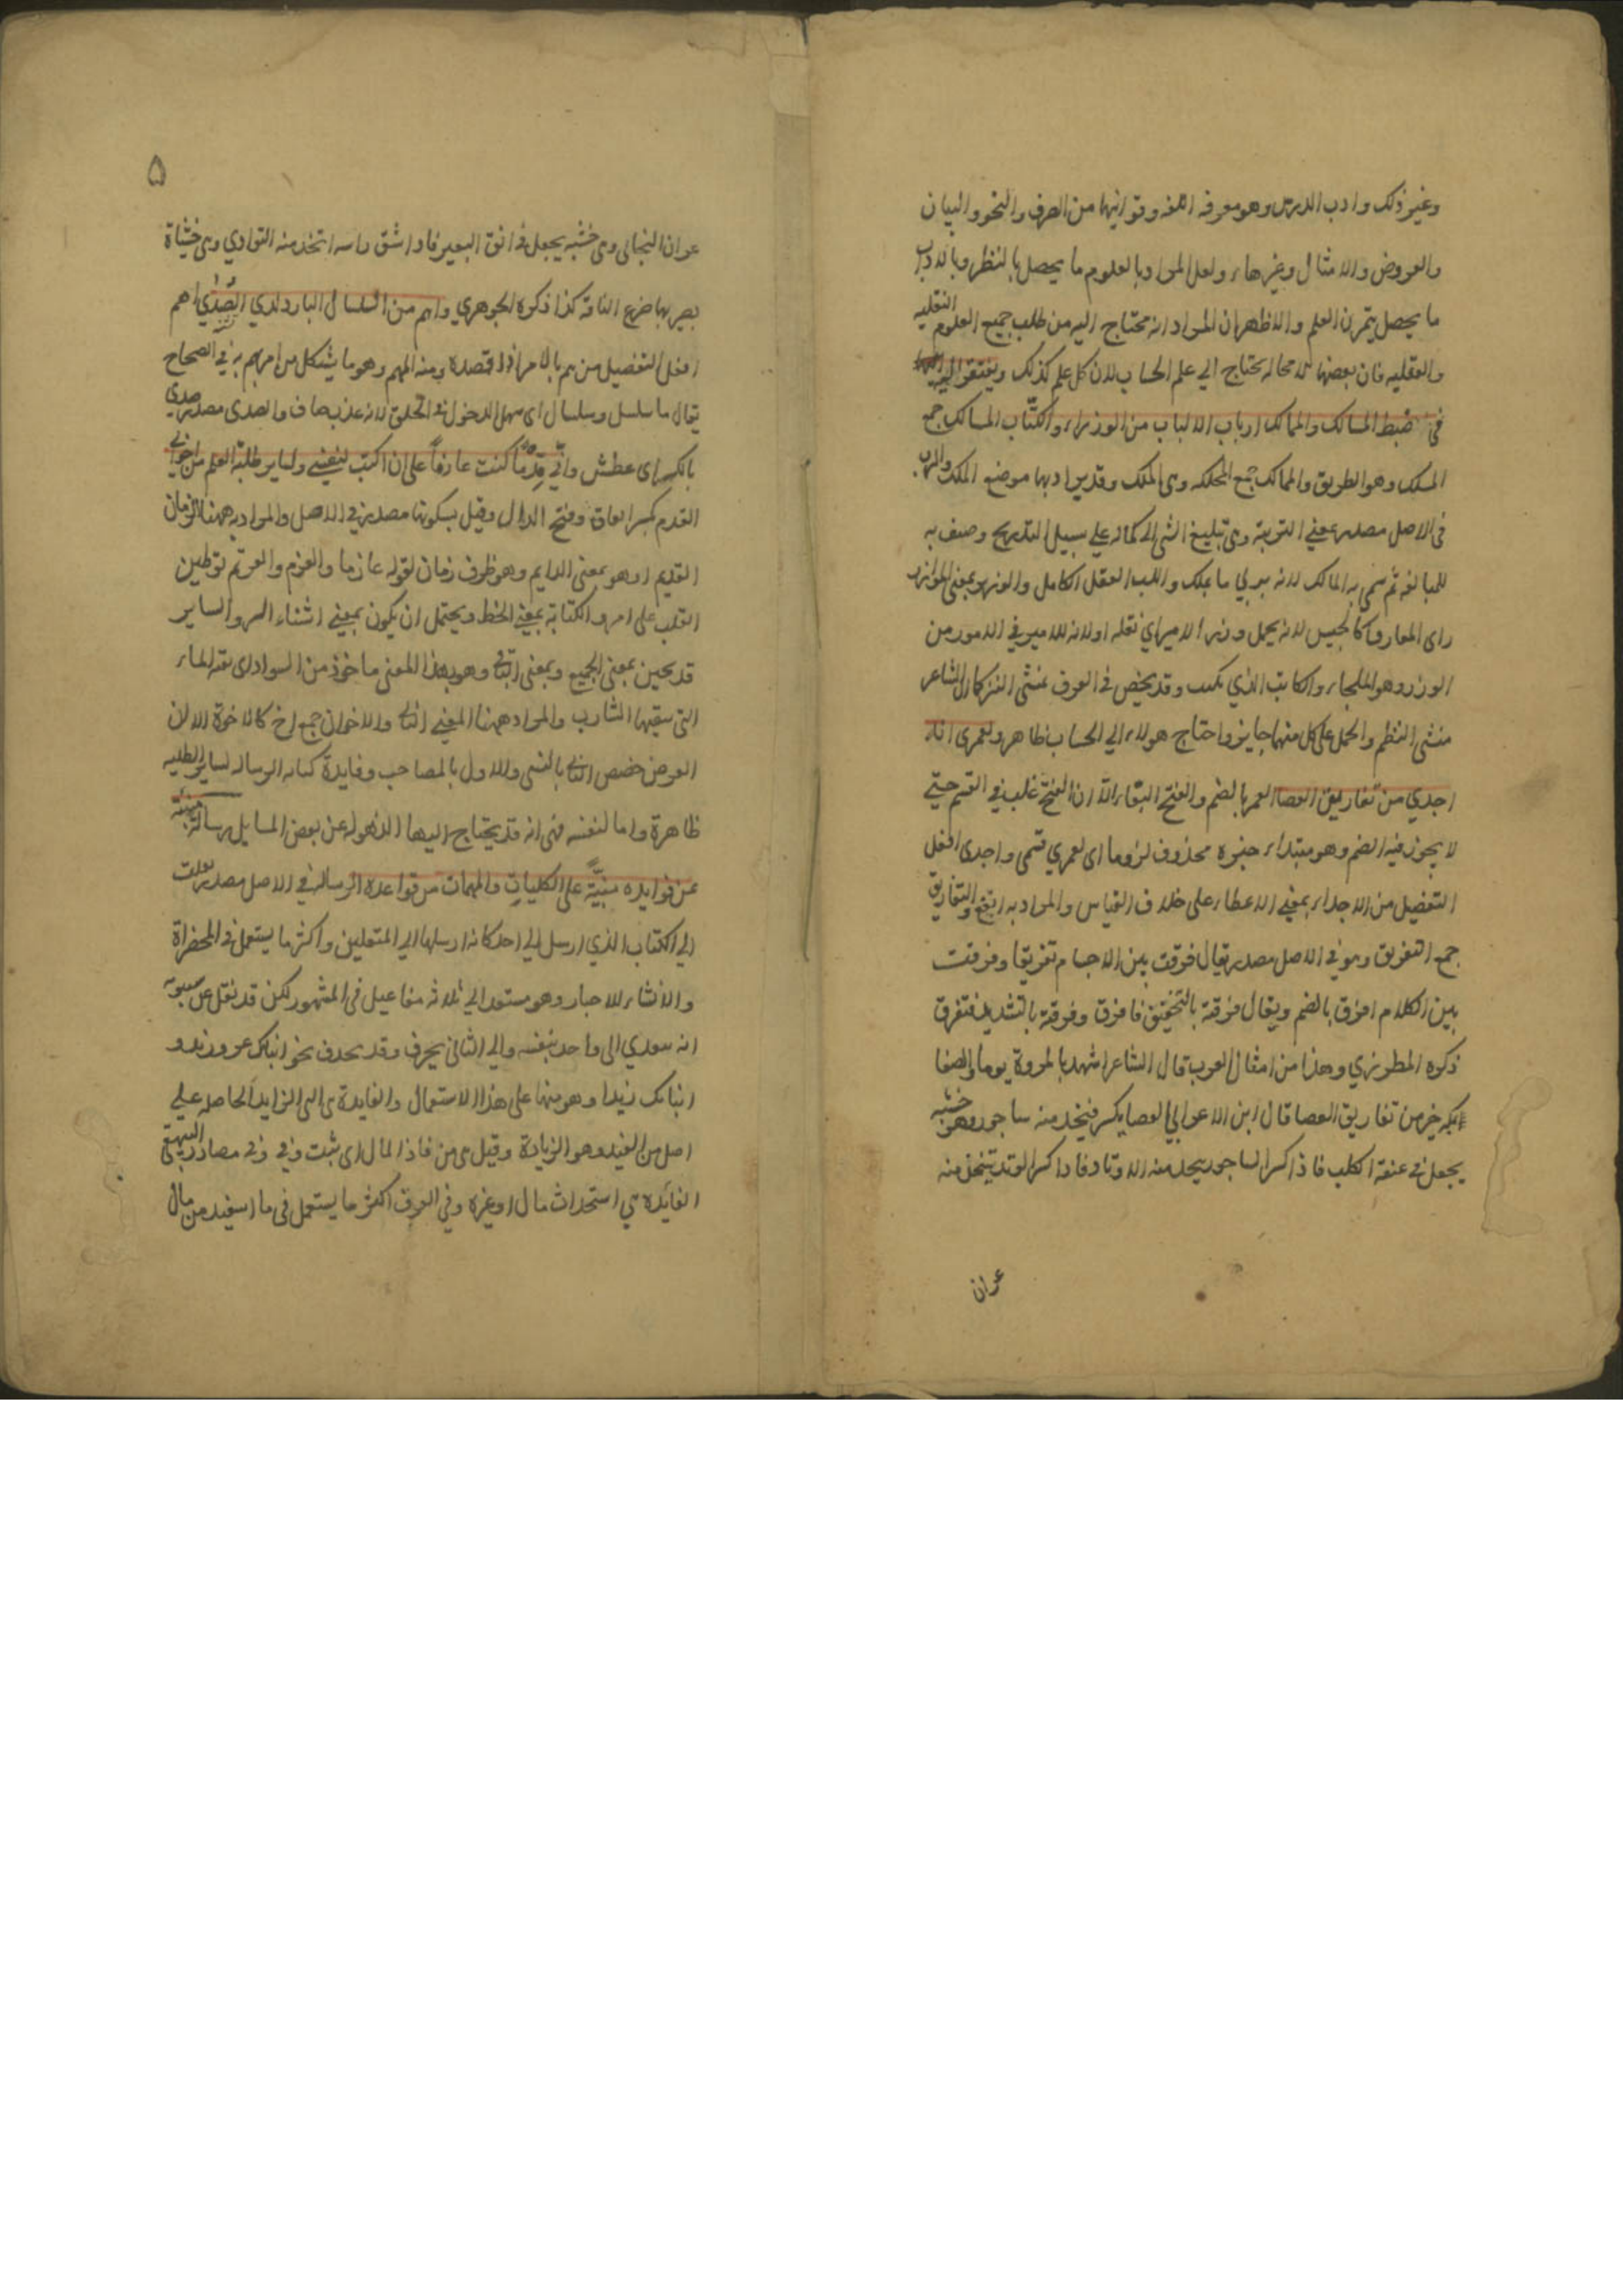 وغير ذلك وادب الدرس وهو معرفه اللغه وقوانينها من الصرف والنحو والبيان
والعروض والامثال وغيرها، ولعل المراد بالعلوم ما يحصل بالنظر وبالادب
ما يحصل بتمرن العلم والاظهر ان المراد انه محتاج اليه من طلب جميع العلوم النقليه
والعقليه فان بعضها لا محاله يحتاج الي علم الحساب لان كل علم كذلك ويفتقر اليه
في ضبط المسالك والممالك ارباب الالباب من الوزراء والكتّاب المسالك جمع
المسلك وهو الطريق والممالك جمع المملكه وهي الملك وقد يراد بها موضع الملك والرب
في الاصل مصدر بمعني التربية وهي تبليغ الشي الي كماله علي سبيل التدريج وصف به
للمبالغه ثم سمي به المالك لانه يربي ما يملك واللب العقل الكامل والوزير بمعني الموازر
اي المعاون كالجليس لانه يحمل وزر الامير اي ثقله او لانه للامير في الامور من
الوزر وهو الملجاء والكاتب الذي يكتب وقد يخص في العرف بمنشي النثر كالشاعر
منشي النظم والحمل علي كل منهما جايز واحتياج هولاء الي الحساب ظاهر ولعمري انه
اجدي من تفاريق العصا العمر بالضم والفتح البقاء الا ان الفتح غلب في القسم حتي
لا يجوز فيه الضم وهو مبتداء خبره محذوف لزوما اي لعمري قسمي واجدي افعل
التفضيل من الاجداء بمعني الاعطاء علي خلاف القياس والمراد به انفع والتفاريق
جمع التفريق وهو في الاصل مصدر يقال فرقت بين الاجسام تفريقا وفرقت
بين الكلام افرق بالضم ويقال فرقته بالتخفيف فافرق وفرقته بالتشديد فتفرق
ذكره المطرزي وهذا من امثال العرب قال الشاعر اشهد بالمروة يوما والصفا
انك خير من تفاريق العصا قال ابن الاعرابي العصا يكسر فيتخذ منه ساجور وهو خشبه
يجعل في عنق الكلب فاذا كسر الساجور يتخذ منه الاوتاد فاذا كسر الوتد يتخذ منه
عران
۵
عران النجاتي وهي خشبه يجعل في انف البعير فاذا شق راسه اتخذ منه التوادي وهي خشباة
يصر بها ضرع الناقه كذا ذكره الجوهري واهم من السلسال البارد لذي الصدي اهم
افعل التفضيل من هم بالامر اذا قصده ومنه المهم وهو ما يشتكل من امر يهم به في الصحاح
يقال ما سلسل وسلسال اي سهل الدخول في الحلق لانه عذب صاف والصدي مصدر صدي
بالكسر اي عطش واني قدما كنت عازما علي ان اكتب لنفسي ولساير طلبة العلم من اخواني
القدم بكسر القاف وفتح الدال وقيل بسكونها مصدر في الاصل والمراد به ههنا الزمان
القديم او هو بمعني الدايم وهو ظرف زمان لقوله عازما والعزم والعزيم توطين
القلب علي امر والكتابة بمعني الخط ويحتمل ان يكون بمعني انشاء السر والساير
قد يجيئ بمعني الجميع وبمعني الباقي وهو بهذا المعني ماخوذ من السوار اي بقه الماء
التي يبقيها الشارب والمراد ههنا المعني الثاني والاخوان جمع اخ كالاخوة الا ان
العرض خصص الثاني بالنسبي والاول بالمصاحب وفايدة كتابه الرساله لساير الطلبه
ظاهرة واما لنفسه فهي انه قد يحتاج اليها الذهوله عن بعض المسايل رسالة منبئه
عن فوايده مبنيّة علي الكليات والمهمات من قواعده الرساله في الاصل مصدر نقلت
الي الكتاب الذي ارسل الي احد كانه ارسلها الي المتعلمين واكثر ما يستعمل في المختصراة
والانشاء للاخبار وهو مستعد الي ثلاثه مفاعيل في المشهور لكن قد نقل عن سيبويه
انه يتعدي الي واحد بنفسه والي الثاني بحرف وقد يحذف نحو انباك عمرو زيد و
انباتك زيدا وهو منها علي هذا الاستعمال والفايدة هي الزايد الحاصله علي
اصل من الفيد وهو الزيادة وقيل هي من فاد المال اي ثبت وفي مصادر البيهقي
الفائده هي استحداث مال او غيره وفي العرف اكثر ما يستعمل في ما استفيد من مال